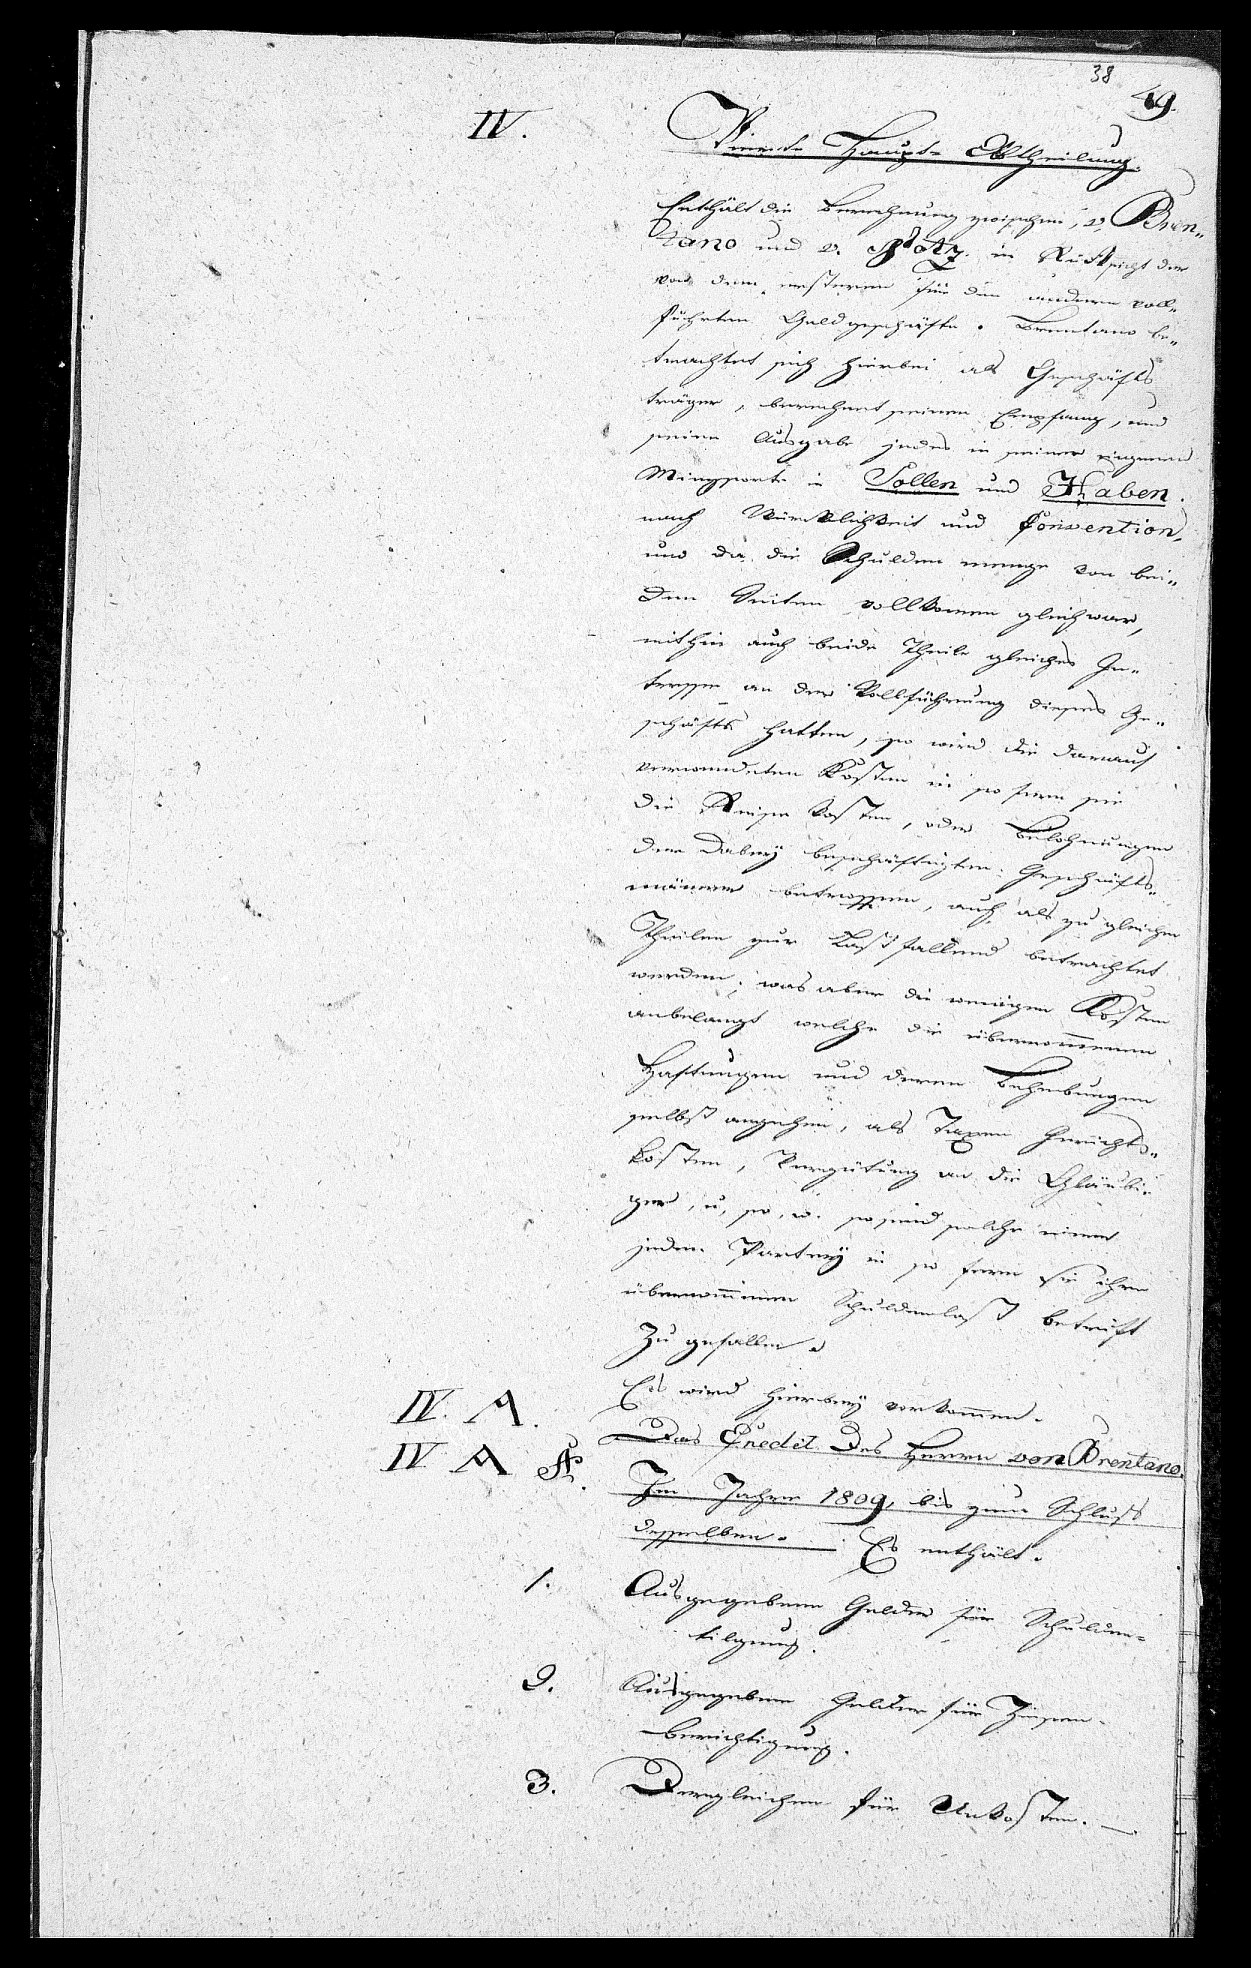 38
49.
IV.
Vierte Haupt-Abtheilung.
Enthält die Berechnung zwischen v. Bren„
tano und v. in Rücksicht der
von dem ersteren für den anderen voll„
führten Geldgeschäfte. Brentano be„
trachtet sich hierbei als Geschäfts
träger, berechnet seinen Empfang, und
seine Ausgabe jedes in seiner eigenen
Münzsorte in Sollen und Haben.
nach Würcklichkeit und Convention,
und da die Schulden menge von bei„
den Seiten vollkomen gleich war,
mithin auch beide Theile gleiches In„
teresse an der Vollführung dieses Ge„
schäfts hatten, so wird die darauf
verwendeten Kosten in so fern sie
die Reise kosten, oder Belohnungen
der dabey beschäftigten Geschäfts„
männer betreffen, auch als zu gleichen
Theilen zur Last fallend betrachtet
werden; was aber die wenigen Kosten
anbelangt welche die übernommenen
Haftungen und deren Behebungen
selbst angehen, als Taxen Gerichts„
kosten, Vergütung an die Gläubi„
ger, u, so, w. so sind solche einer
jeden Partey in so fern sie ihre
übernommene Schuldenlast betrift
zu gefallen.
Es wird hierbey vorkommen.
IV. A.
Das Credit Des Herrn von Brentano.
IV A
Im Jahre 1809, bis zum Schluß
desselben. Es enthält.
1.
Ausgegebene Gelder für Schulden„
tilgung.
2.
Ausgegebene Gelder für Zinsen
berichtigung.
3.
Dergleichen für Unkosten.